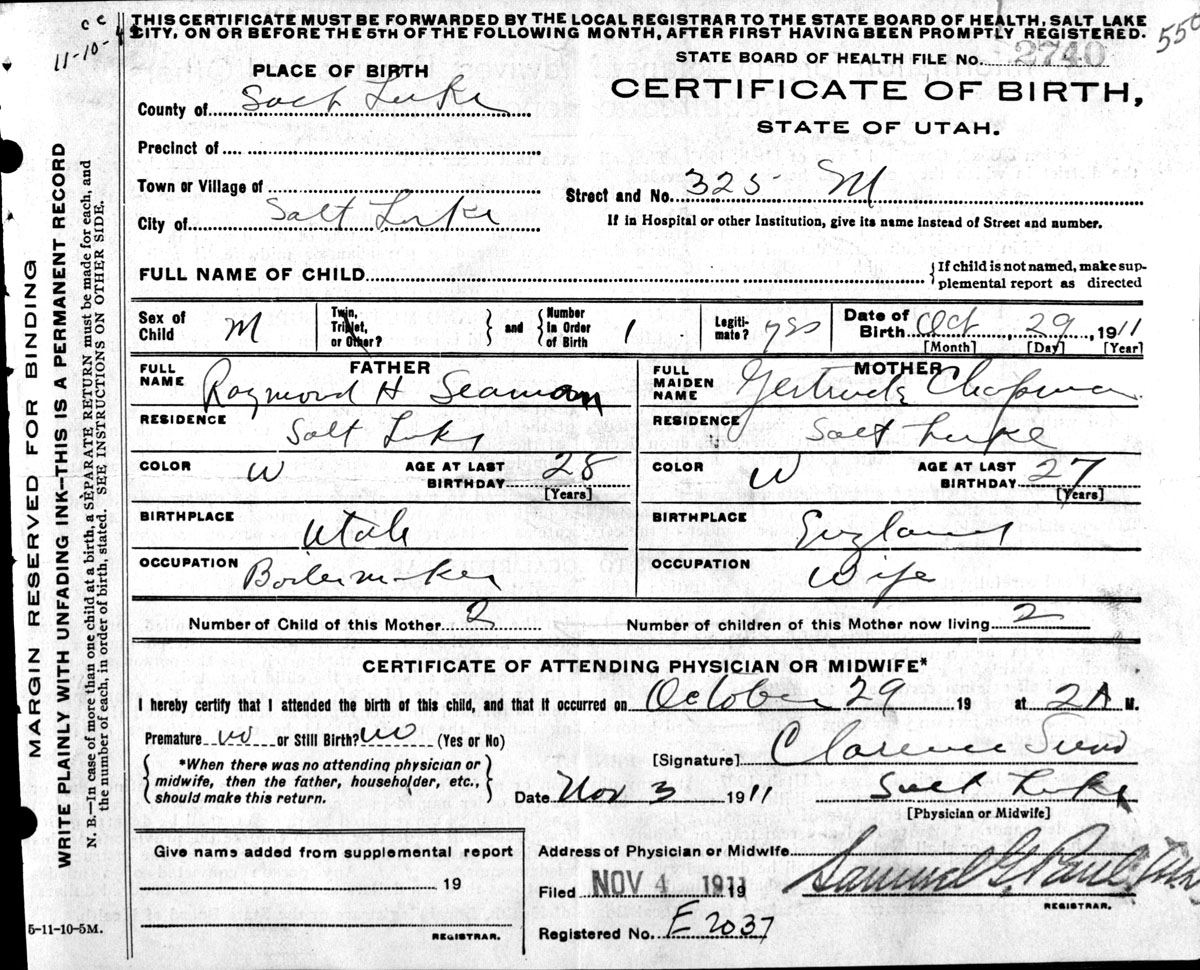 THIS CERTIFICATE MUST BE FORWARDED BY THE LOCAL REGISTRAR TO THE STATE BOARD OF HEALTH, SALT LAKE
CITY, ON OR BEFORE THE 5TH OF THE FOLLOWING MONTH, AFTER FIRST HAVING BEEN PROMPTLY REGISTERED.
cc
11-10-
STATE BOARD OF HEALTH FILE No. 2740
CERTIFICATE OF BIRTH,
STATE OF UTAH.
PLACE OF BIRTH
County of Salt Lake
Precinct of
Town or Village of
City of Salt Lake
Street and No. 325 M
If in Hospital or other Institution, give its name instead of Street and number.
FULL NAME OF CHILD
{If child is not named, make sup-
plemental report as directed
Sex of Child M Twin, Triplet, or Other? } and { Number In Order of Birth 1 Legiti-mate? yes Date of Birth Oct 29, 1911
[Month] [Day] [Year]
FATHER
FULL NAME Raymond H Seamon
RESIDENCE Salt Lake
COLOR W AGE AT LAST BIRTHDAY 28
[Years]
BIRTHPLACE Utah
OCCUPATION Boilermaker
MOTHER
FULL MAIDEN NAME Gertrude Chapman
RESIDENCE Salt Lake
COLOR W AGE AT LAST BIRTHDAY 27
[Years]
BIRTHPLACE England
OCCUPATION Wife
Number of Child of this Mother 2 Number of children of this Mother now living 2
CERTIFICATE OF ATTENDING PHYSICIAN OR MIDWIFE*
I hereby certify that I attended the birth of this child, and that it occurred on October 29 19 at 2 A M.
Premature no or Still Birth? no (Yes or No)
{ *When there was no attending physician or
midwife, then the father, householder, etc.,
should make this return. }
[Signature] Clarence
Date Nov 3 1911 Salt Lake
[Physician or Midwife]
Give name added from supplemental report
19
REGISTRAR.
Address of Physician or Midwife
Filed NOV 4 1911 19 Samuel G. Paul
REGISTRAR.
Registered No. E 2037
5-11-10-5M.
MARGIN RESERVED FOR BINDING
WRITE PLAINLY WITH UNFADING INK—THIS IS A PERMANENT RECORD
N. B.—In case of more than one child at a birth, a SEPARATE RETURN must be made for each, and
the number of each, in order of birth, stated. SEE INSTRUCTIONS ON OTHER SIDE.